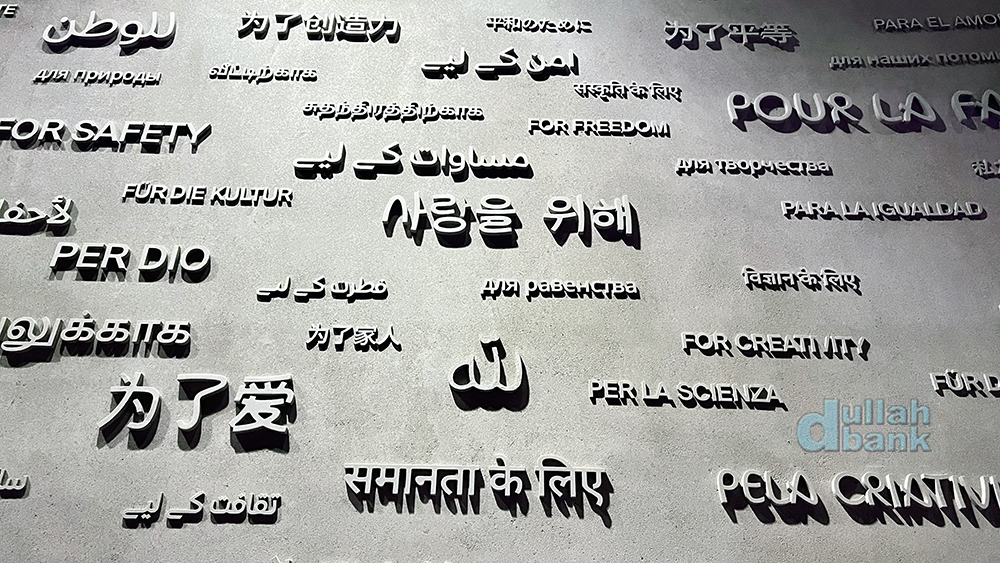 للوطن
为了创造力
平和のために
为了平等
PARA EL AMO
для природы
வீட்டிற்காக
امن کے لیے
для наших потом
संस्कृति के लिए
சுதந்திரத்திற்காக
POUR LA FA
FOR SAFETY
FOR FREEDOM
مساوات کے لیے
для творчества
FÜR DIE KULTUR
사랑을 위해
PARA LA IGUALDAD
PER DIO
فطرت کے لیے
для равенства
विज्ञान के लिए
为了家人
FOR CREATIVITY
لله
为了爱
PER LA SCIENZA
FÜR D
dullah bank
समानता के लिए
ثقافت کے لیے
PELA CRIATIVI